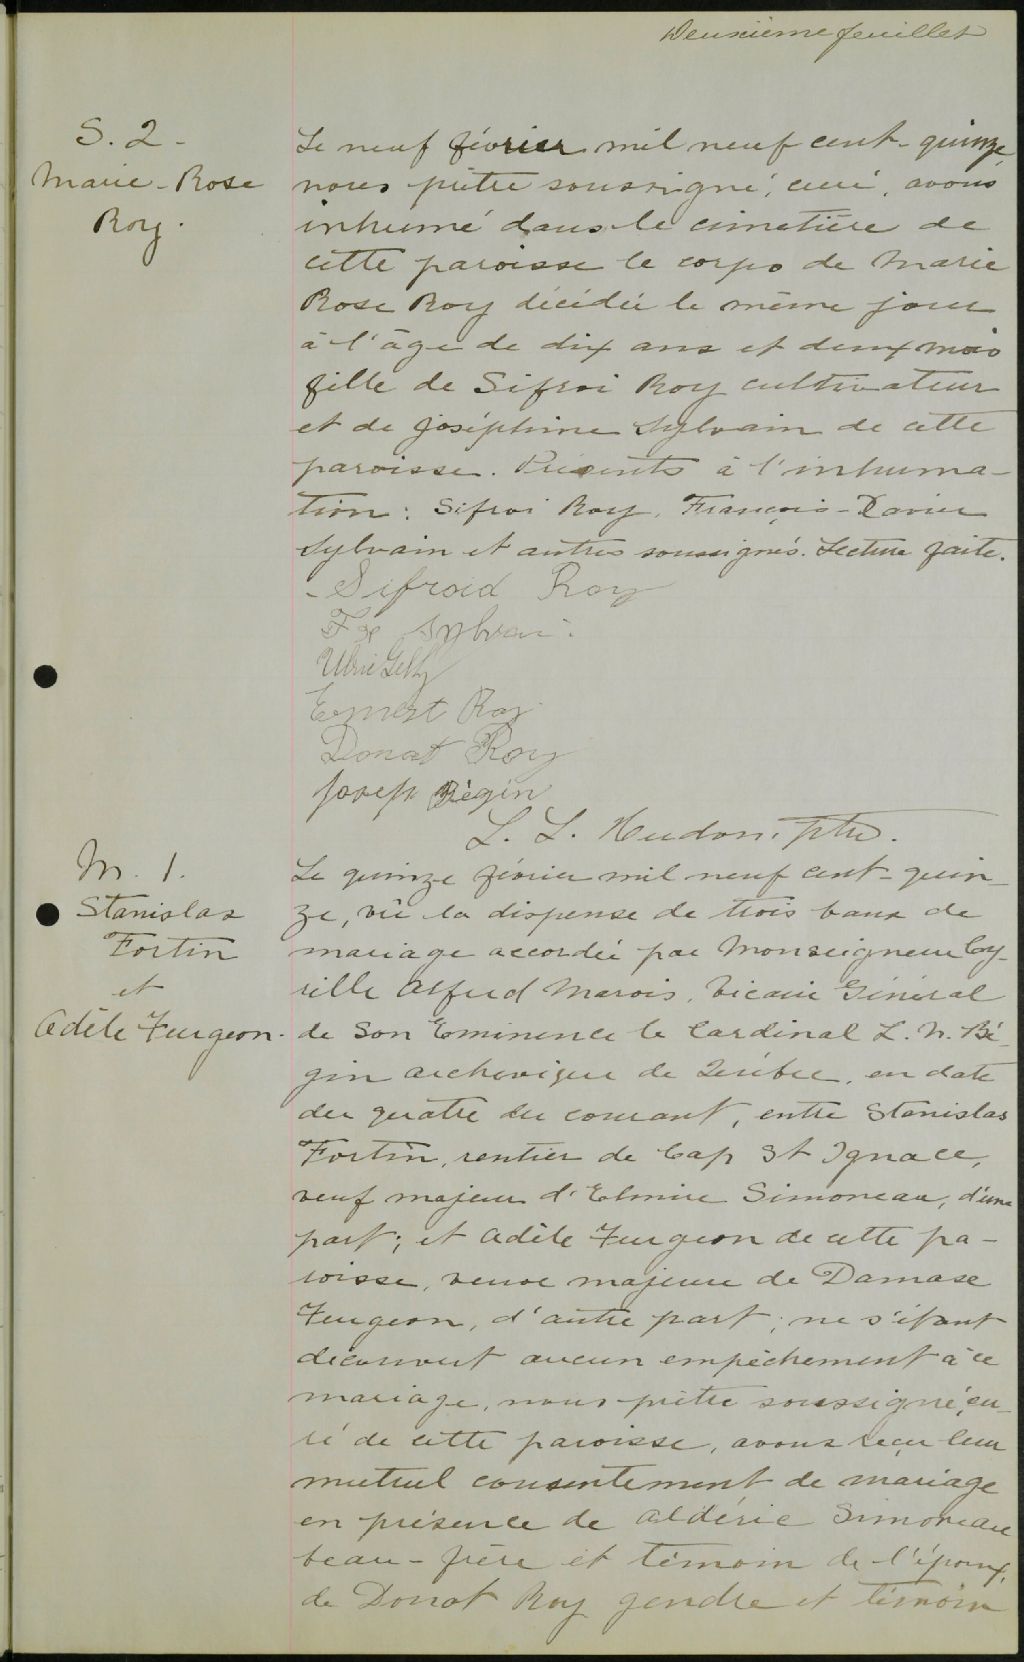 Deuxième feuillet
S. 2 -
Marie-Rose
Roy.
Le neuf février mil neuf cent-quinze,
nous prêtre soussigné, curé, avons
inhumé dans le cimetière de
cette paroisse le corps de Marie
Rose Roy décédée le même jour
à l'âge de dix ans et deux mois
fille de Sifroi Roy cultivateur
et de Joséphine Sylvain de cette
paroisse. Présents à l'inhuma-
tion: Sifroi Roy, François-Xavier
Sylvain et autres soussignés. Lecture faite.
Sifroid Roy
F X Sylvain
Ernest Roy
Donat Roy
Joseph Bégin
L. L. Hudon, ptre.
M. 1.
Stanislas
Fortin
et
Adèle Turgeon.
Le quinze février mil neuf cent-quin-
ze, vû la dispense de trois bans de
mariage accordée par Monseigneur Cy-
rille Alfred Marois, Vicaire Général
de Son Eminence le Cardinal L. N. Bé-
gin archevêque de Québec, en date
du quatre du courant, entre Stanislas
Fortin, rentier de Cap St Ignace,
veuf majeur d'Elmire Simoneau, d'une
part; et Adèle Turgeon de cette pa-
roisse, veuve majeure de Damase
Turgeon, d'autre part; ne s'étant
découvert aucun empêchement à ce
mariage, nous prêtre soussigné, cu-
ré de cette paroisse, avons reçu leur
mutuel consentement de mariage
en présence de Aldéric Simoneau
beau-frère et témoin de l'époux,
de Donat Roy gendre et témoin